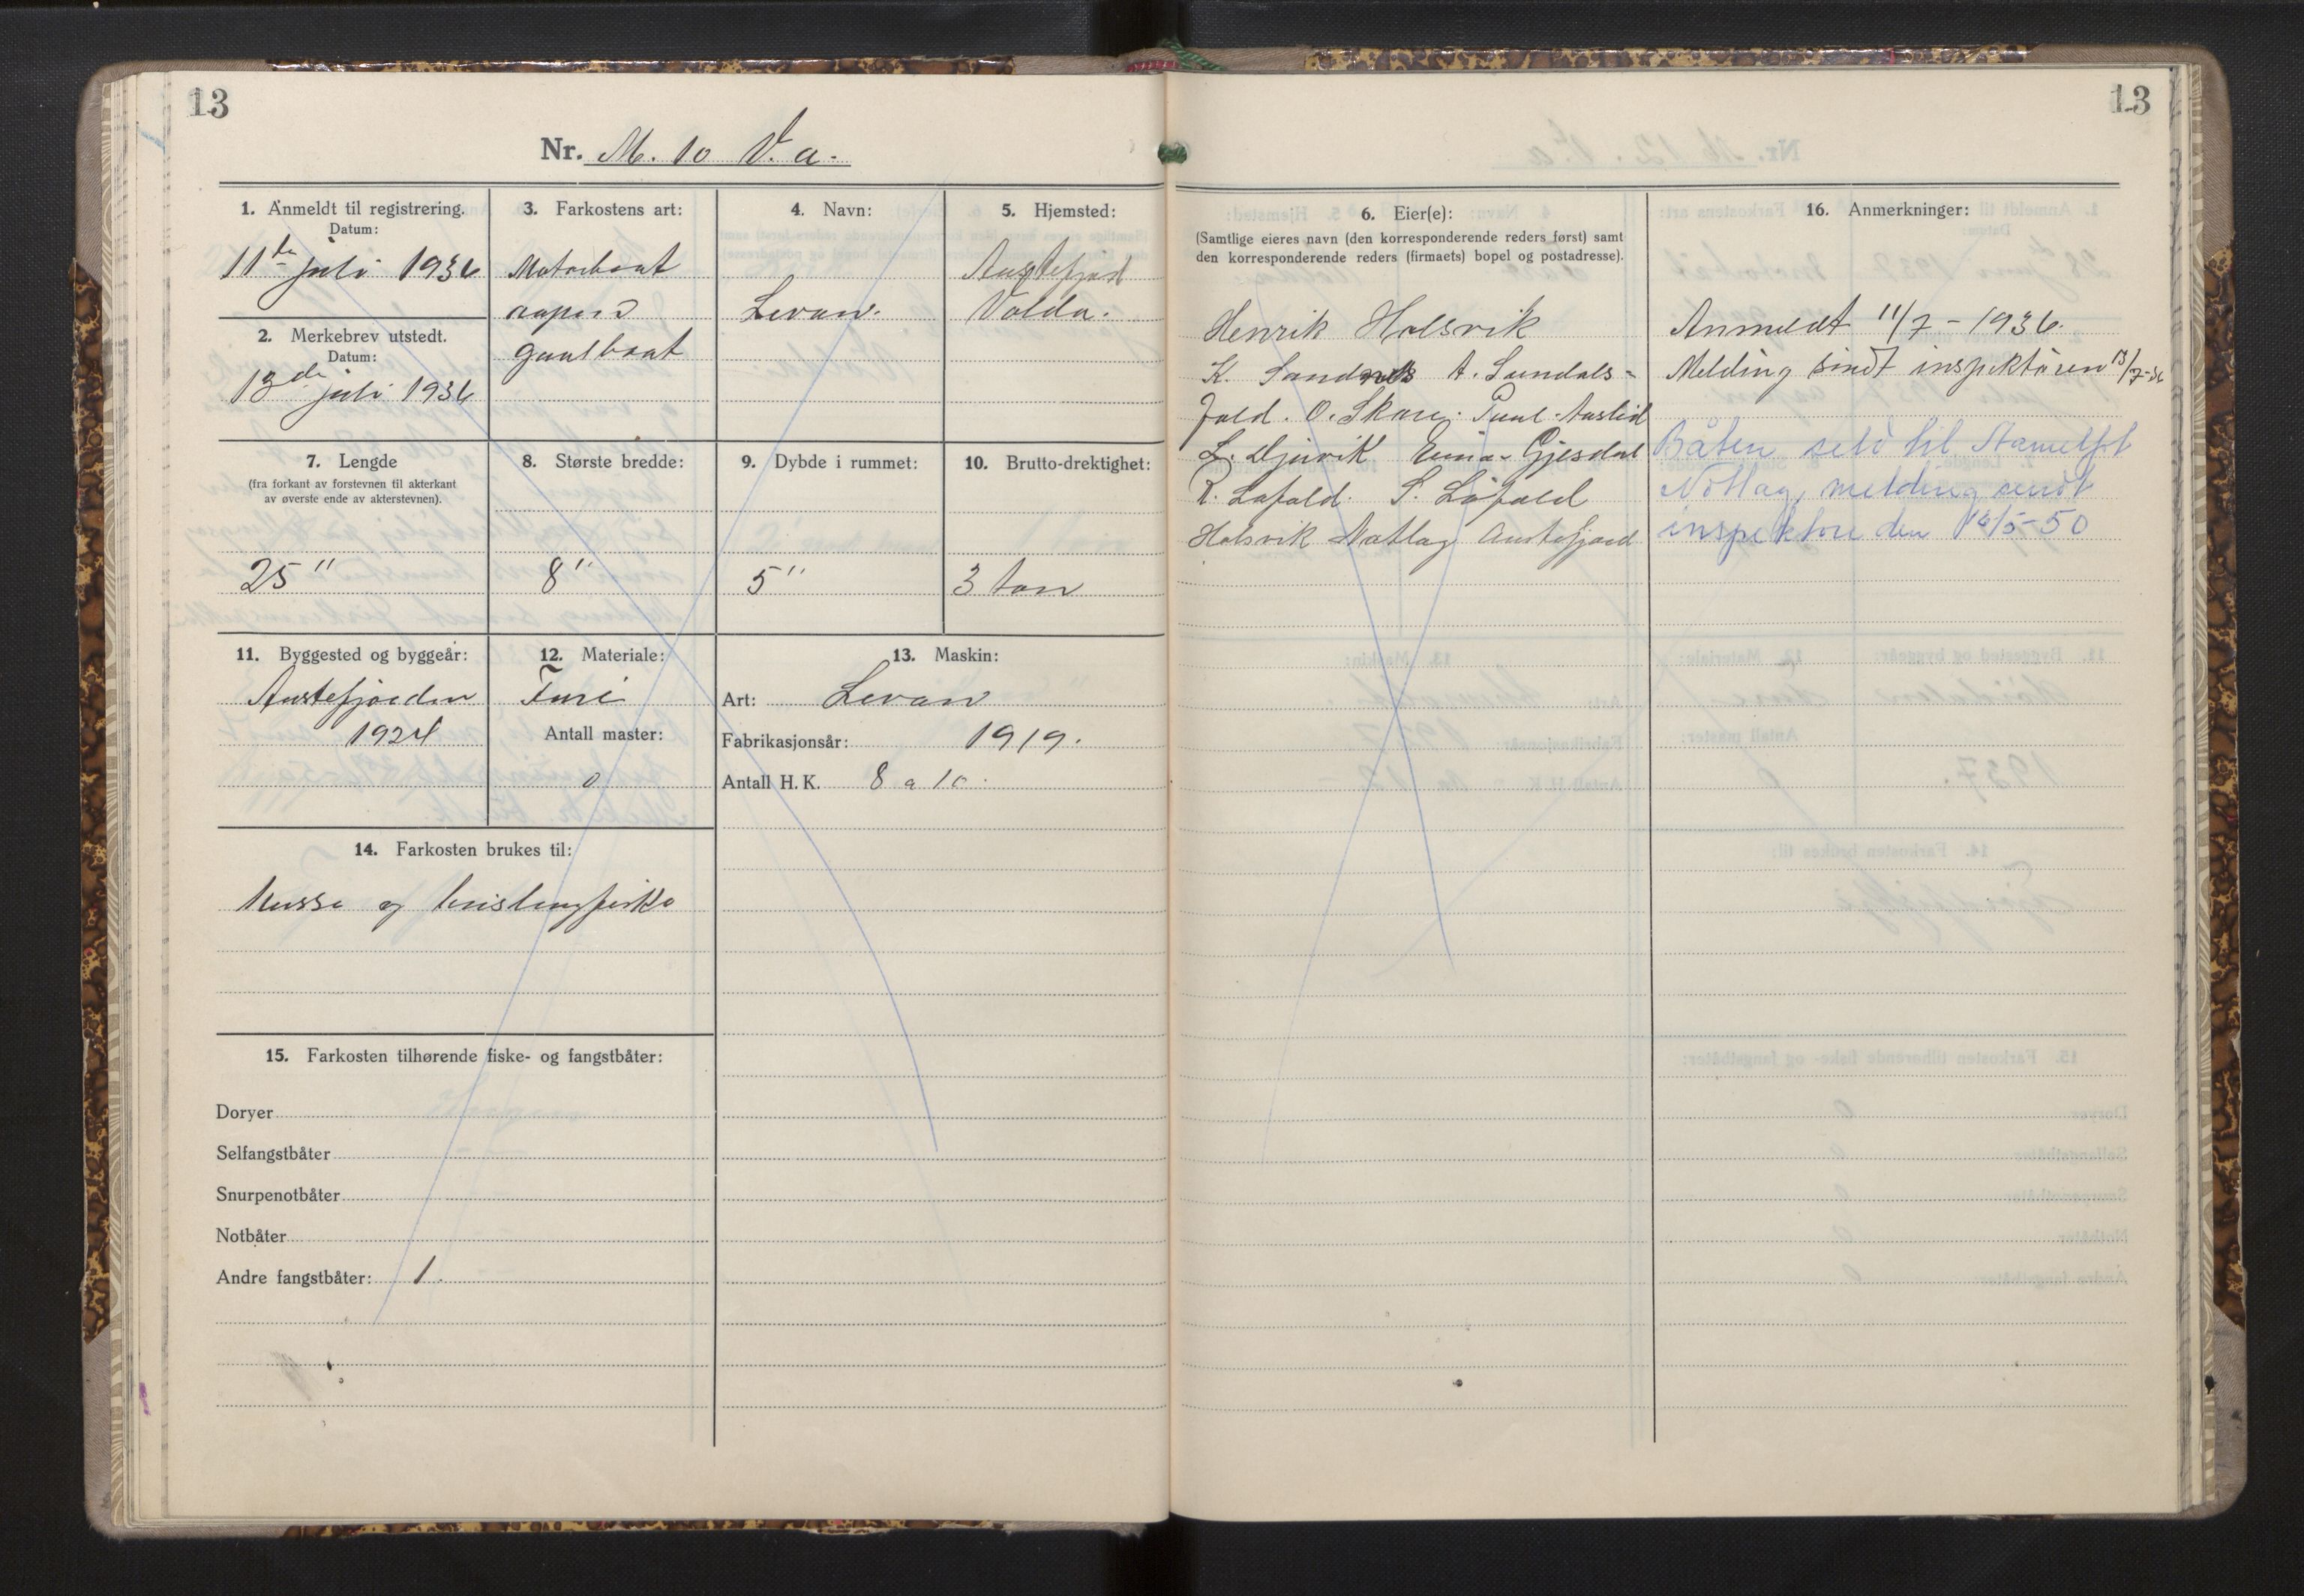 13
Nr. M. 10 V. a.
1. Anmeldt til registrering.
Datum:
11te juli 1936
2. Merkebrev utstedt.
Datum:
13de juli 1936
3. Farkostens art:
Motorbaat
4. Navn:
Levan.
5. Hjemsted:
Austefjord
Volda.
7. Lengde
(fra forkant av forstevnen til akterkant
av øverste ende av akterstevnen).
25"
8. Største bredde:
8"
9. Dybde i rummet:
5"
10. Brutto-drektighet:
3 ton
11. Byggested og byggeår:
Austefjorden
1924
12. Materiale:
Furi
Antall master:
0
13. Maskin:
Art: Levan
Fabrikasjonsår: 1919.
Antall H. K. 8 a 10.
14. Farkosten brukes til:
Mussa og brislingfiske
15. Farkosten tilhørende fiske- og fangstbåter:
Doryer
Selfangstbåter
Snurpenotbåter
Notbåter
Andre fangstbåter: 1.
13
6. Eier(e):
(Samtlige eieres navn (den korresponderende reders først) samt
den korresponderende reders (firmaets) bopel og postadresse).
Henrik Holsvik
K. Sandnes A. Sundals-
fold. O. Skare. Paul Auslid
L. Djuvik Einar Gjesdal
R. Løfald. S. Løfald
Holsvik Notlag Austefjord
16. Anmerkninger:
Anmeldt 11/7 - 1936.
Melding sendt inspektøren 13/7-36
Båten seld til
Notlag, melding sendt
inspektøre den 16/5-50